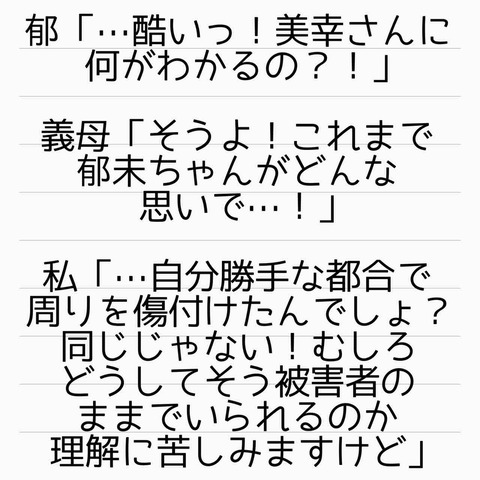 郁「…酷いっ！美幸さんに
何がわかるの？！」
義母「そうよ！これまで
郁未ちゃんがどんな
思いで…！」
私「…自分勝手な都合で
周りを傷付けたんでしょ？
同じじゃない！むしろ
どうしてそう被害者の
ままでいられるのか
理解に苦しみますけど」